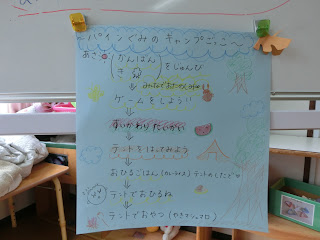 パイングみのキャンプごっこ〜
あさ
かんばん
き
をじゅんび
ゲームをしよう!!
すいかわりたいかい
テントをはってみよう
おひるごはん(カレーライス)テントのしたで♡
テントでおひるね
テントでおやつ(やきマシュマロ)